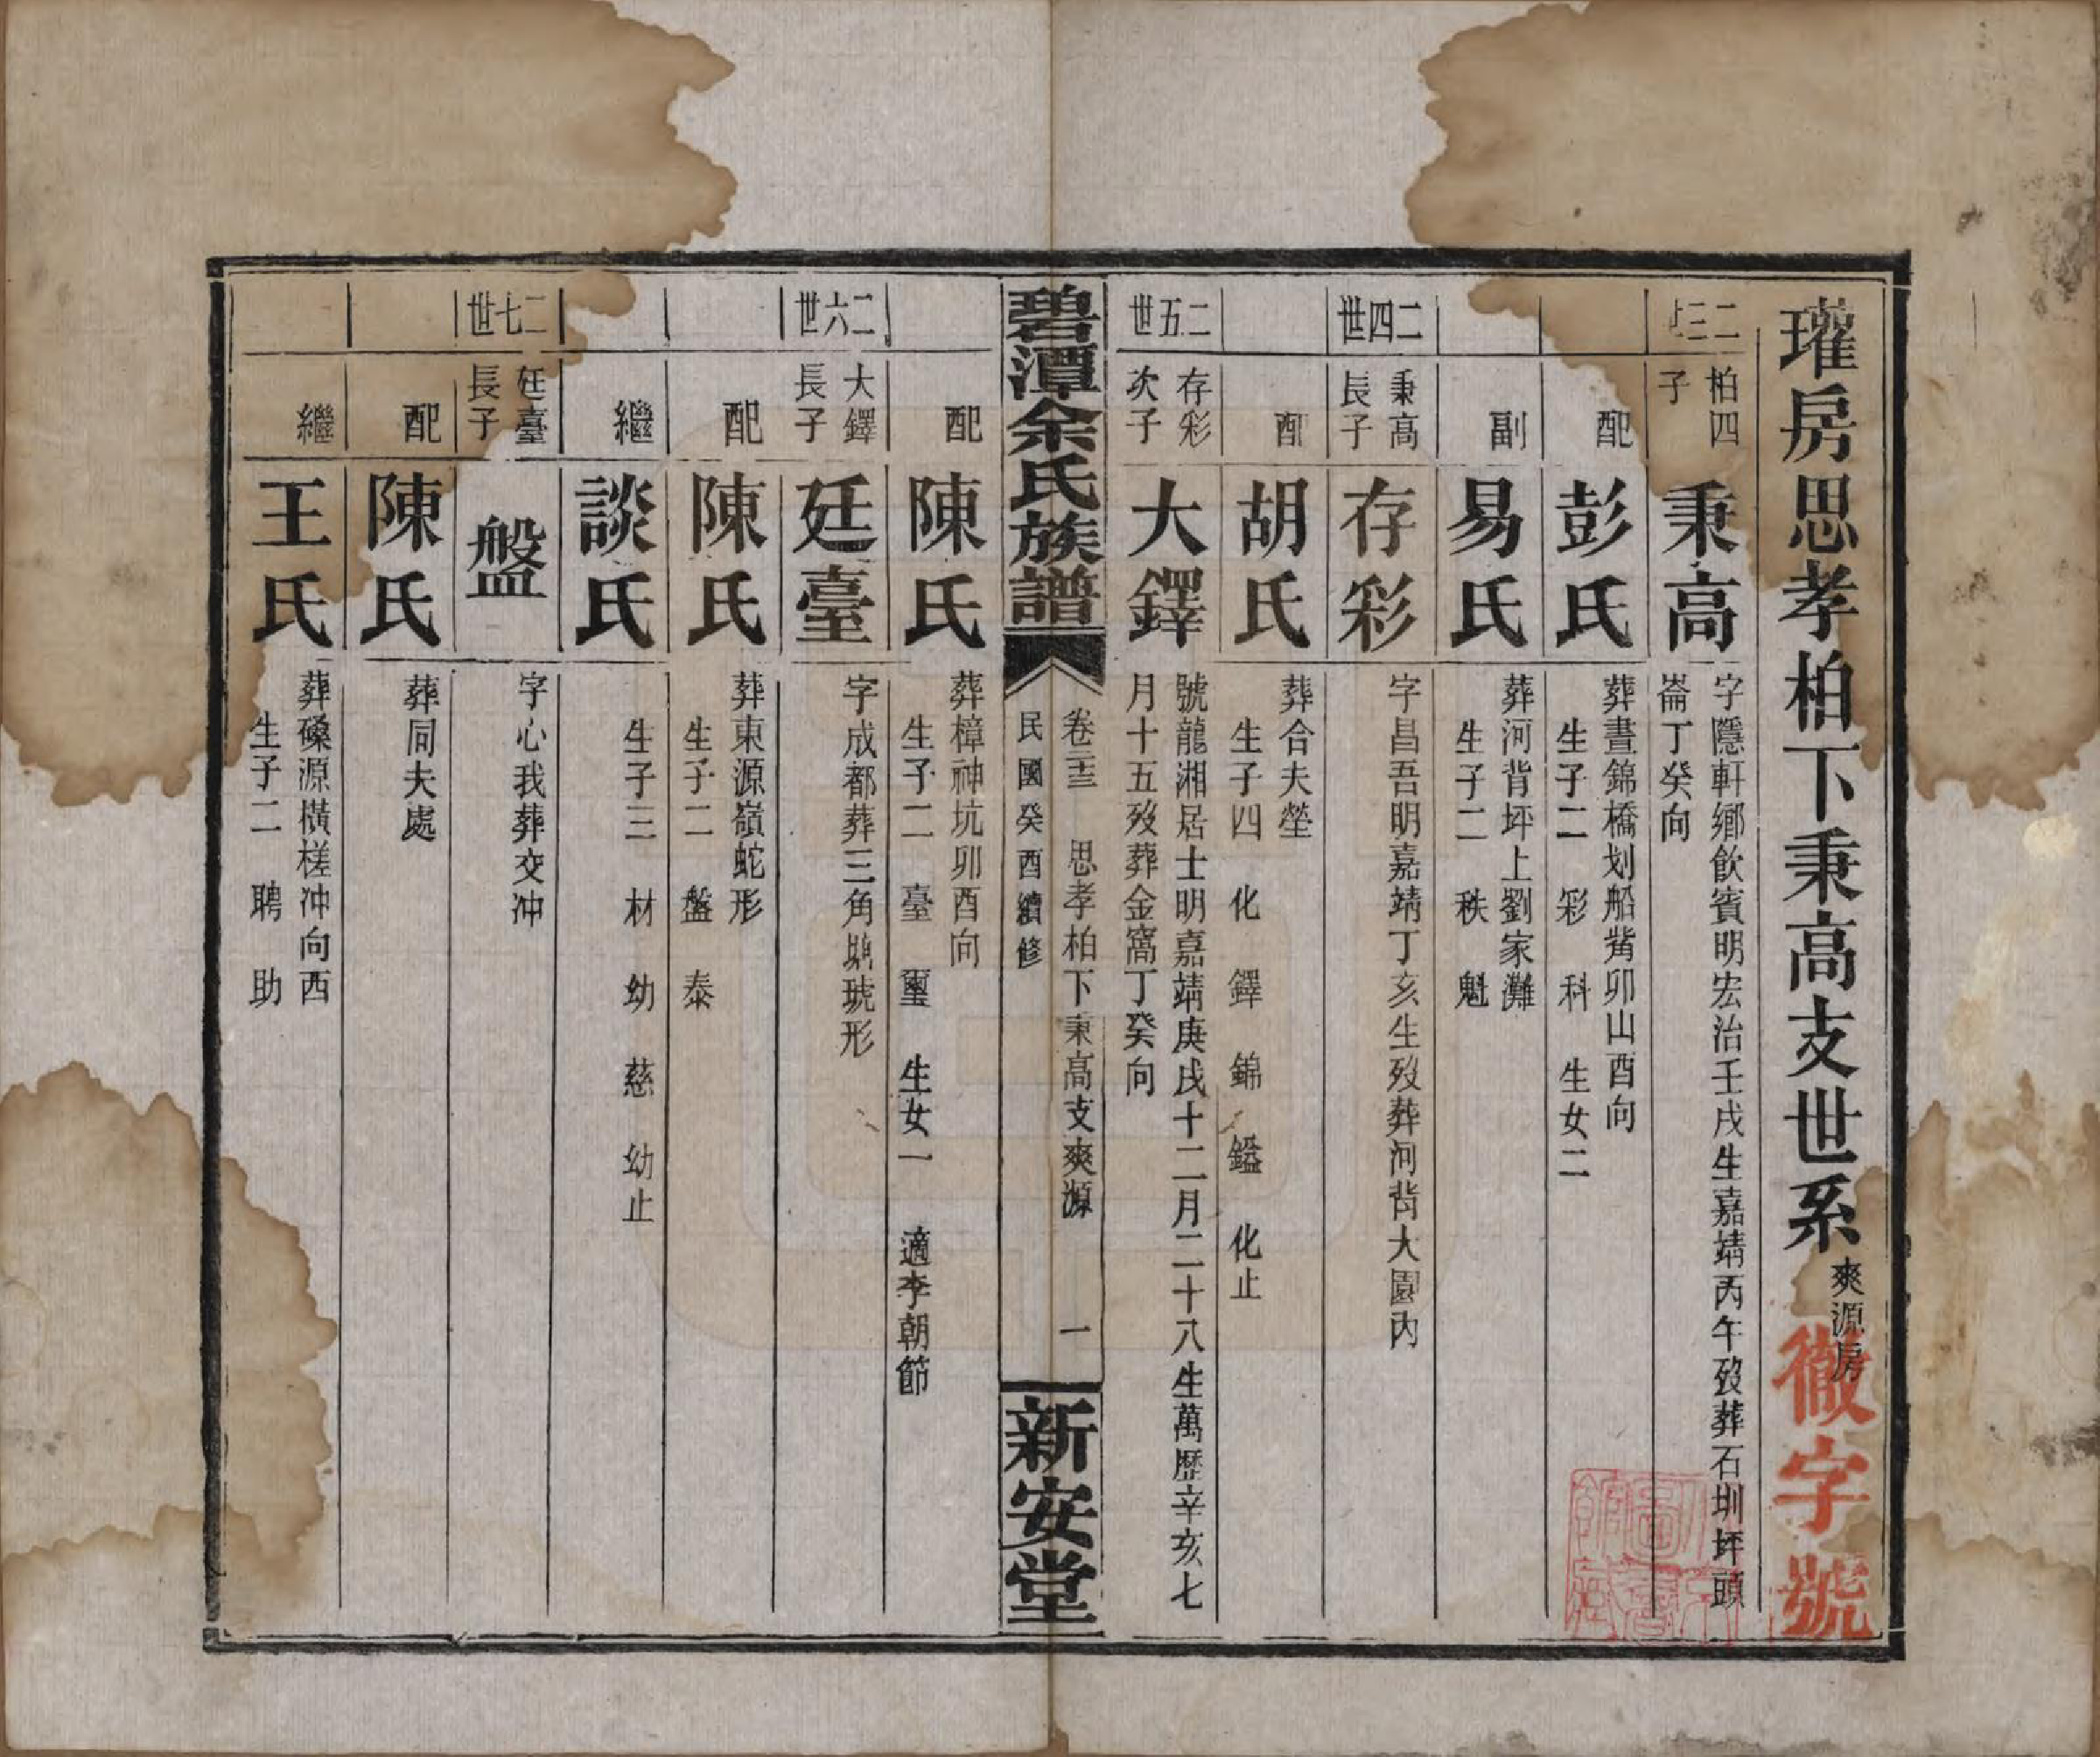 瓘房思孝柏下秉高支世系 爽源房
徽字號
二三世
柏四
子
秉高
字隱軒鄉飲賓明宏治壬戌生嘉靖丙午歿葬石圳坪頭
崙丁癸向
配
彭氏
葬晝錦橋划船觜卯山酉向
生子二 彩 科 生女二
副
易氏
葬河背坪上劉家灘
生子二 秩 魁
二四世
秉高
長子
存彩
字昌吾明嘉靖丁亥生歿葬河背大園內
配
胡氏
葬合夫塋
生子四 化 鐸 錦 鎰 化止
二五世
存彩
次子
大鐸
號龍湘居士明嘉靖庚戌十二月二十八生萬歷辛亥七
月十五歿葬金窩丁癸向
碧潭余氏族譜
卷二十三 思孝柏下秉高支爽源 一
民國癸酉續修
新安堂
配
陳氏
葬樟神坑卯酉向
生子二 臺 璽 生女一 適李朝節
二六世
大鐸
長子
廷臺
字成都葬三角鵰琥形
配
陳氏
葬東源嶺蛇形
生子二 盤 泰
繼
談氏
生子三 材 幼 慈 幼止
二七世
廷臺
長子
盤
字心我葬交冲
配
陳氏
葬同夫處
繼
王氏
葬磉源橫槎冲向西
生子二 聘 助